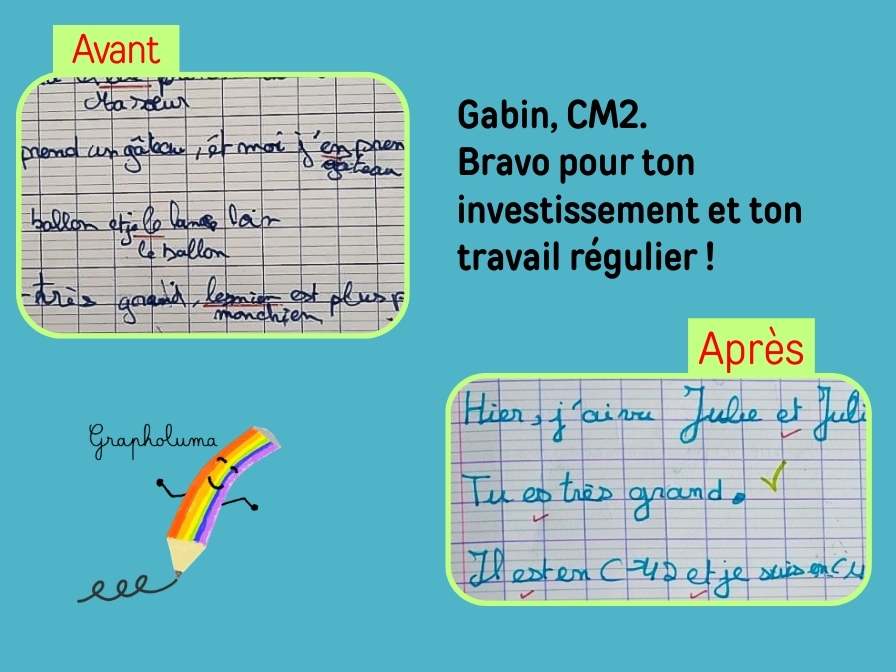 Avant
Ma sœur
prend un gâteau, et moi j'en pren
gâteau
ballon et je le lance loin
le ballon
très grand, le mien est plus
mon chien
Gabin, CM2.
Bravo pour ton
investissement et ton
travail régulier !
Après
Hier, j'ai vu Julie et Juli
Tu es très grand.
Il est en CM2 et je suis en CM
Grapholuma